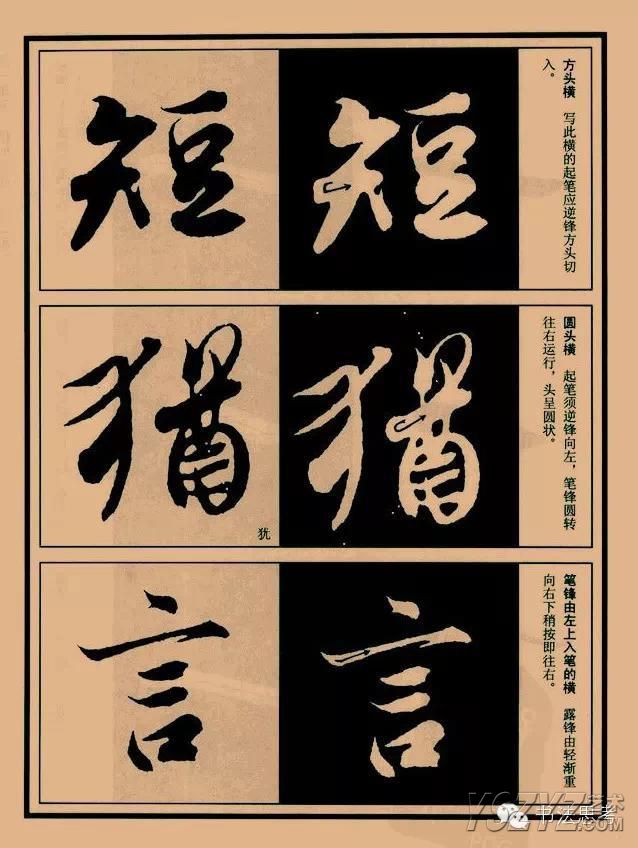 方头横 写此横的起笔应逆锋方头切
入。
短
短
圆头横 起笔须逆锋向左，笔锋圆转
往右运行，头呈圆状。
猶
猶
犹
笔锋由左上入笔的横 露锋由轻渐重
向右下稍按即往右。
言
言
书法思考